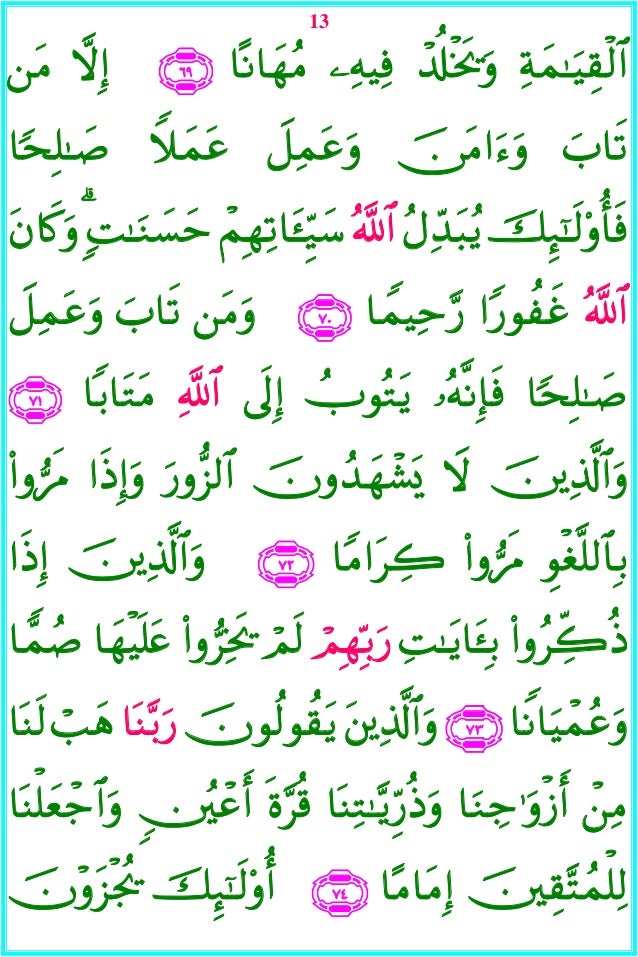 13
ٱلْقِيَـٰمَةِ وَيَخْلُدْ فِيهِۦ مُهَانًا ٦٩ إِلَّا مَن
تَابَ وَءَامَنَ وَعَمِلَ عَمَلًا صَـٰلِحًا
فَأُو۟لَـٰٓئِكَ يُبَدِّلُ ٱللَّهُ سَيِّـَٔاتِهِمْ حَسَنَـٰتٍ ۗ وَكَانَ
ٱللَّهُ غَفُورًا رَّحِيمًا ٧٠ وَمَن تَابَ وَعَمِلَ
صَـٰلِحًا فَإِنَّهُۥ يَتُوبُ إِلَى ٱللَّهِ مَتَابًا ٧١
وَٱلَّذِينَ لَا يَشْهَدُونَ ٱلزُّورَ وَإِذَا مَرُّوا۟
بِٱللَّغْوِ مَرُّوا۟ كِرَامًا ٧٢ وَٱلَّذِينَ إِذَا
ذُكِّرُوا۟ بِـَٔايَـٰتِ رَبِّهِمْ لَمْ يَخِرُّوا۟ عَلَيْهَا صُمًّا
وَعُمْيَانًا ٧٣ وَٱلَّذِينَ يَقُولُونَ رَبَّنَا هَبْ لَنَا
مِنْ أَزْوَٰجِنَا وَذُرِّيَّـٰتِنَا قُرَّةَ أَعْيُنٍ وَٱجْعَلْنَا
لِلْمُتَّقِينَ إِمَامًا ٧٤ أُو۟لَـٰٓئِكَ يُجْزَوْنَ